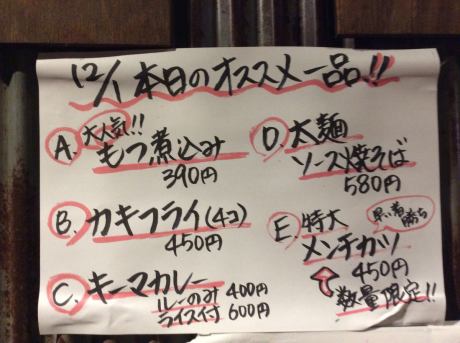 12/1 本日のオススメ一品!!
A. 大人気!!
もつ煮込み
390円
B. カキフライ(4コ)
450円
C. キーマカレー
ルーのみ 400円
ライス付 600円
D. 太麺
ソース焼そば
580円
E. 特大
早い者勝ち
メンチカツ
450円
数量限定!!